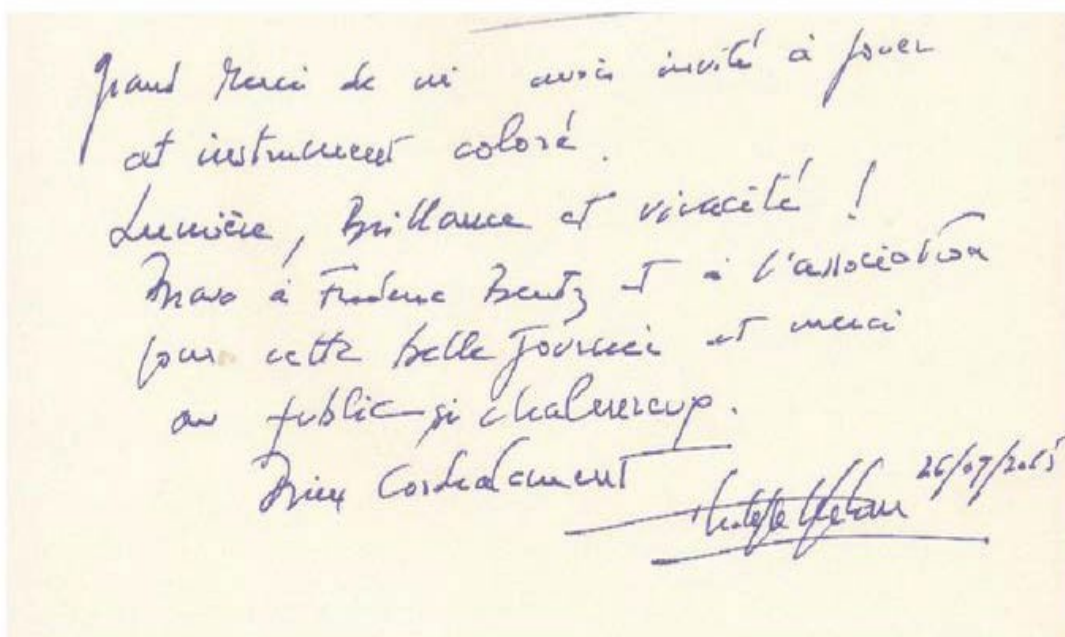 Grand merci de m'avoir invité à jouer
cet instrument coloré.
Lumière, Brillance et vivacité !
Bravo à Frédéric Bentz et à l'association
pour cette belle journée et merci
au public si chaleureux.
Bien Cordialement
26/07/2015